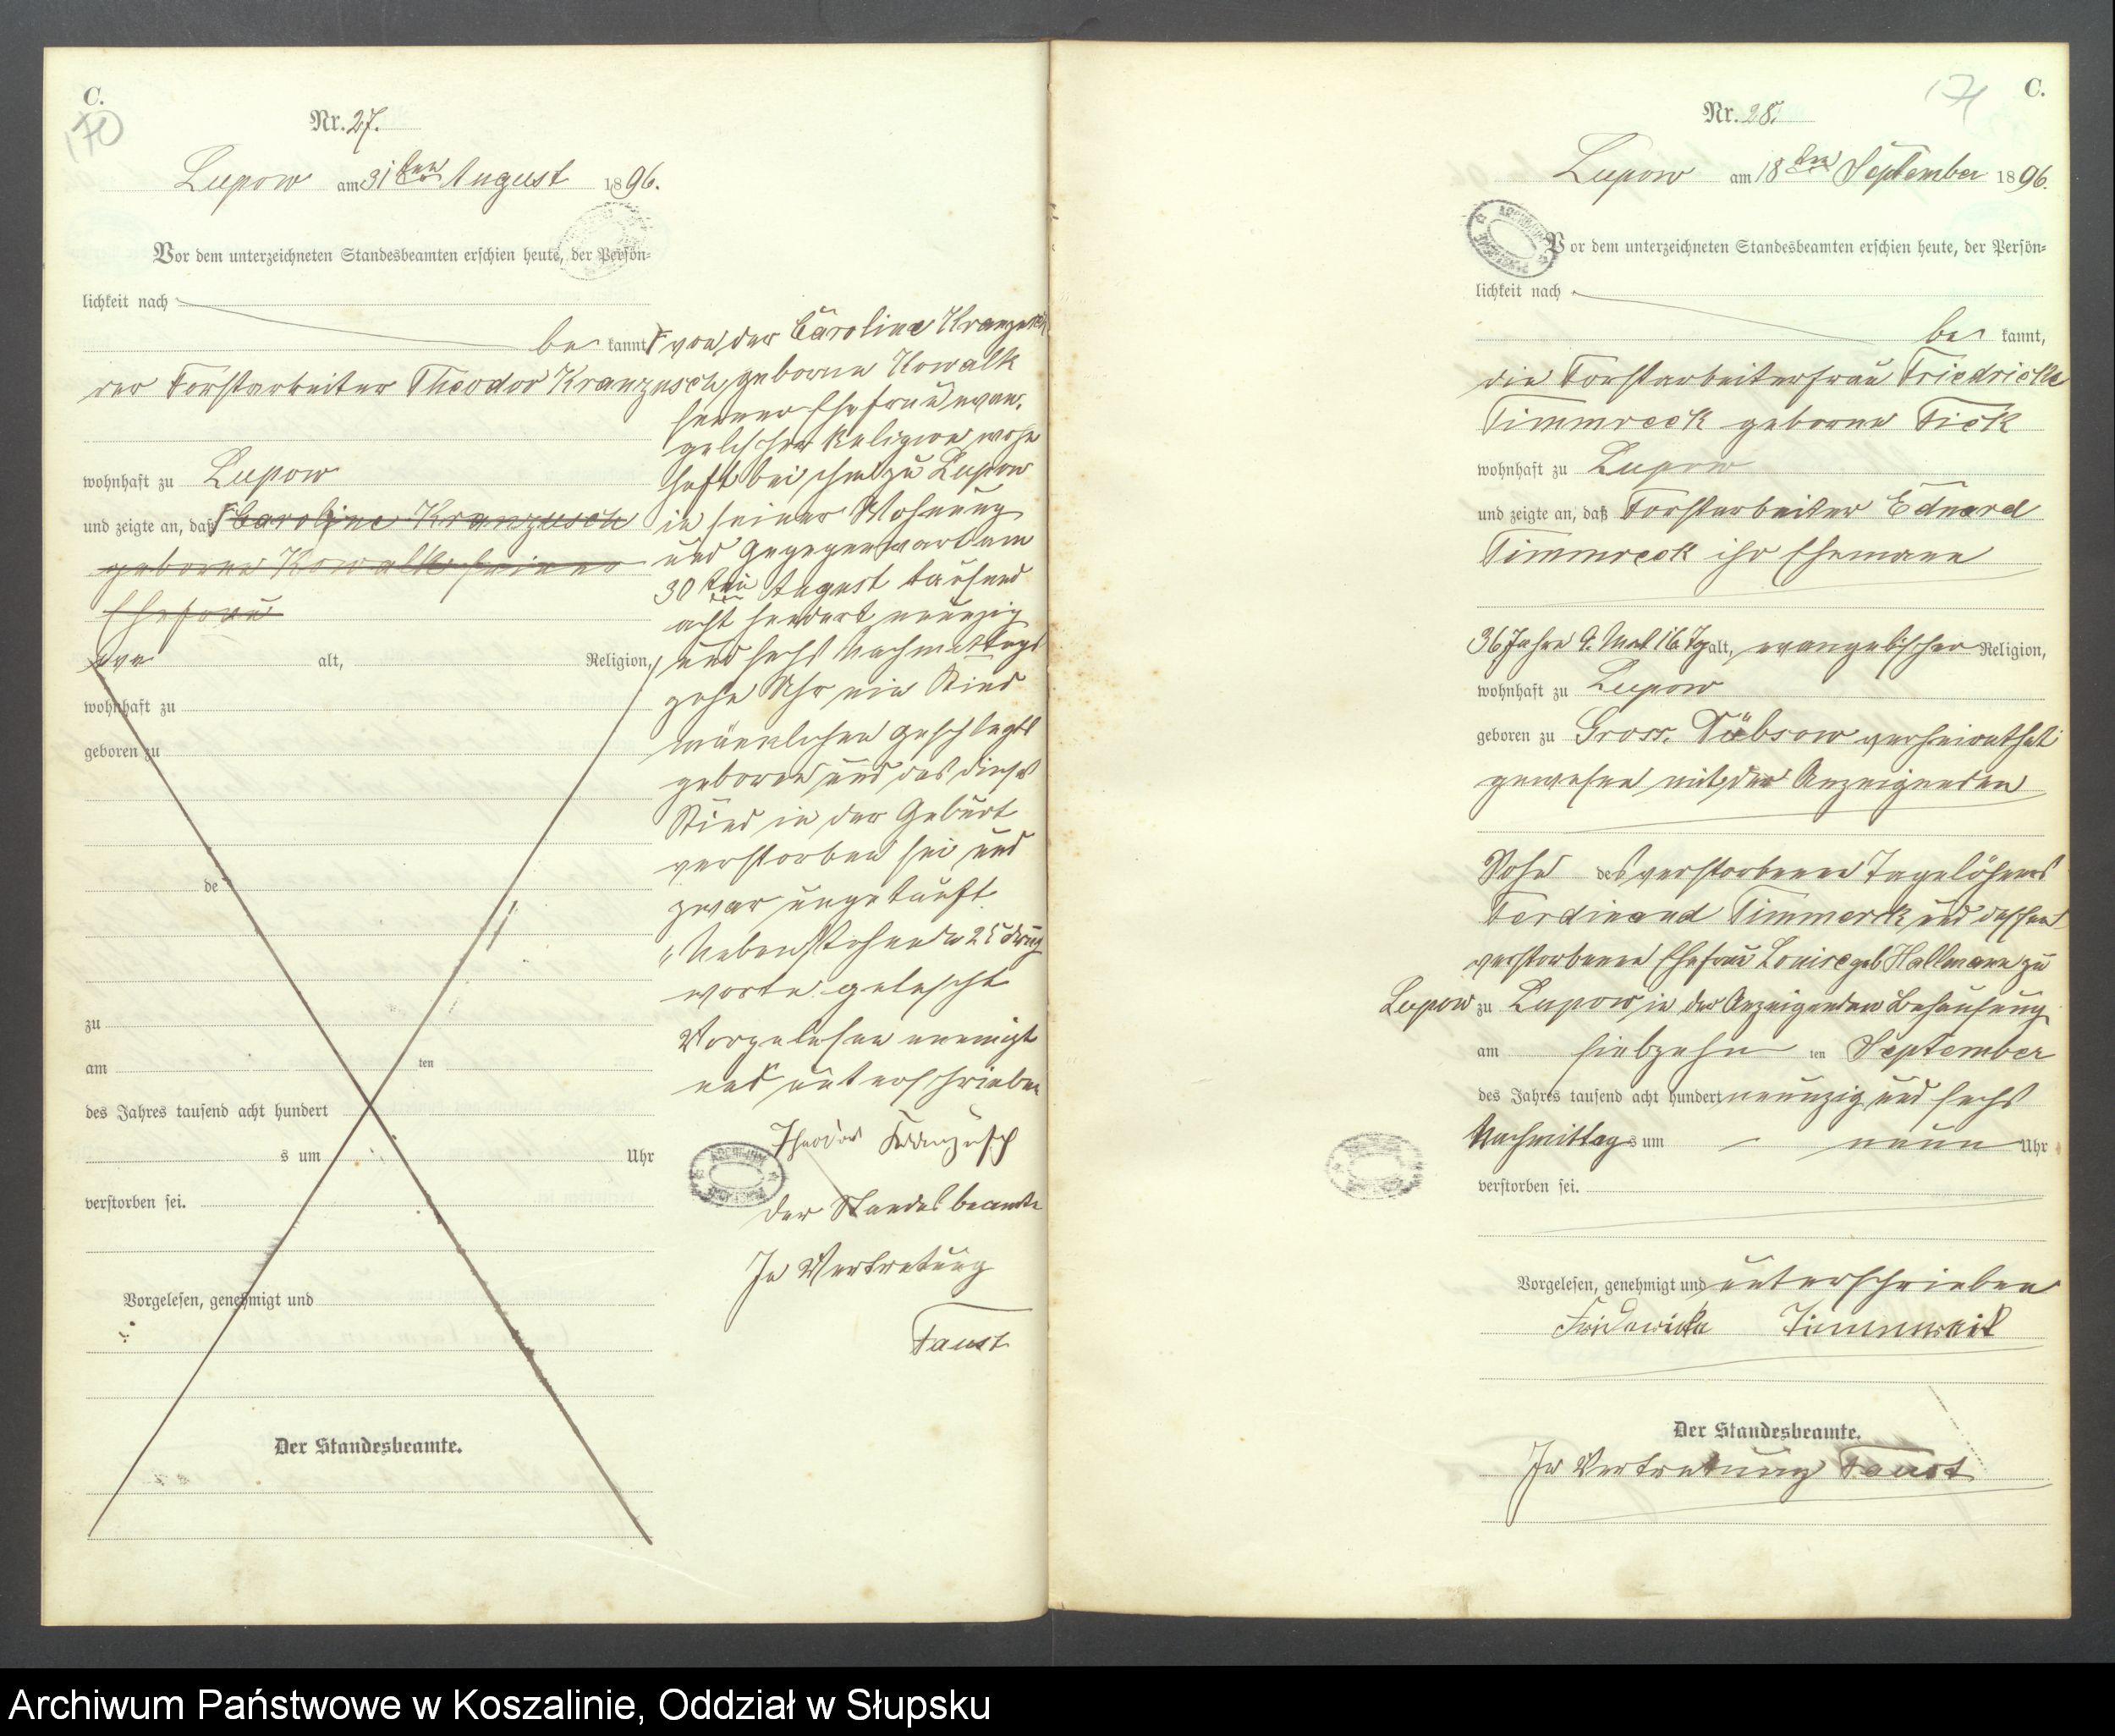 C.
170
Nr. 27.
Lupow am 31ten August 1896.
Vor dem unterzeichneten Standesbeamten erschien heute, der Persön-
lichkeit nach
be kannt,
der Forstarbeiter Theodor Kranzusch
wohnhaft zu Lupow
und zeigte an, daß Caroline Kranzusch
geborne Kowalk seiner
Ehefrau
alt, Religion,
wohnhaft zu
geboren zu
de
zu
am ten
des Jahres tausend acht hundert
s um Uhr
verstorben sei.
Vorgelesen, genehmigt und
Der Standesbeamte.
von der Caroline Kranzusch
geborne Kowalk
seiner Ehefrau evan-
gelischer Religion wohn
haft bei ihm zu Lupow
in seiner Wohnung
und Gegegenwart am
30ten August tausend
acht hundert neunzig
und sechs Nachmittags
zehn Uhr ein Kind
männlichen Geschlegts
geboren und das dieses
Kind in der Geburt
verstorben sei und
zwar ungetauft.
Nebenstehende 25 Druck
worte gelescht
Vorgelesen genemigt
und unterschrieben
Theodor Kranzusch
Der Standesbeamte
In Vertretung
Faust
C.
171
Nr. 28.
Lupow am 18ten September 1896.
Vor dem unterzeichneten Standesbeamten erschien heute, der Persön-
lichkeit nach
be kannt,
die Forstarbeiterfrau Friedricke
Timmreck geborne Fick
wohnhaft zu Lupow
und zeigte an, daß Forstarbeiter Eduard
Timmreck ihr Ehemann
36 Jahre 9. Mot 16 Tg alt, evangelischer Religion,
wohnhaft zu Lupow
geboren zu Gross. Dübsow verheirathet
gewesen mit der Anzeigenden
Sohn des verstorbenen Tagelöhners
Ferdinand Timmerck und dessen
verstorbenen Ehefrau Louise geb Hallmann zu
Lupow zu Lupow in der Anzeigenden Behausung
am siebzehn ten September
des Jahres tausend acht hundert neunzig und sechs
Nachmittags um neun Uhr
verstorben sei.
Vorgelesen, genehmigt und unterschrieben
Fridericke Timmreck
Der Standesbeamte.
In Vertretung Faust
Archiwum Państwowe w Koszalinie, Oddział w Słupsku